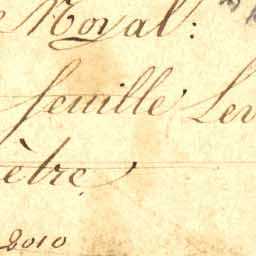 Moyal:
feuille Ler
être,
2010